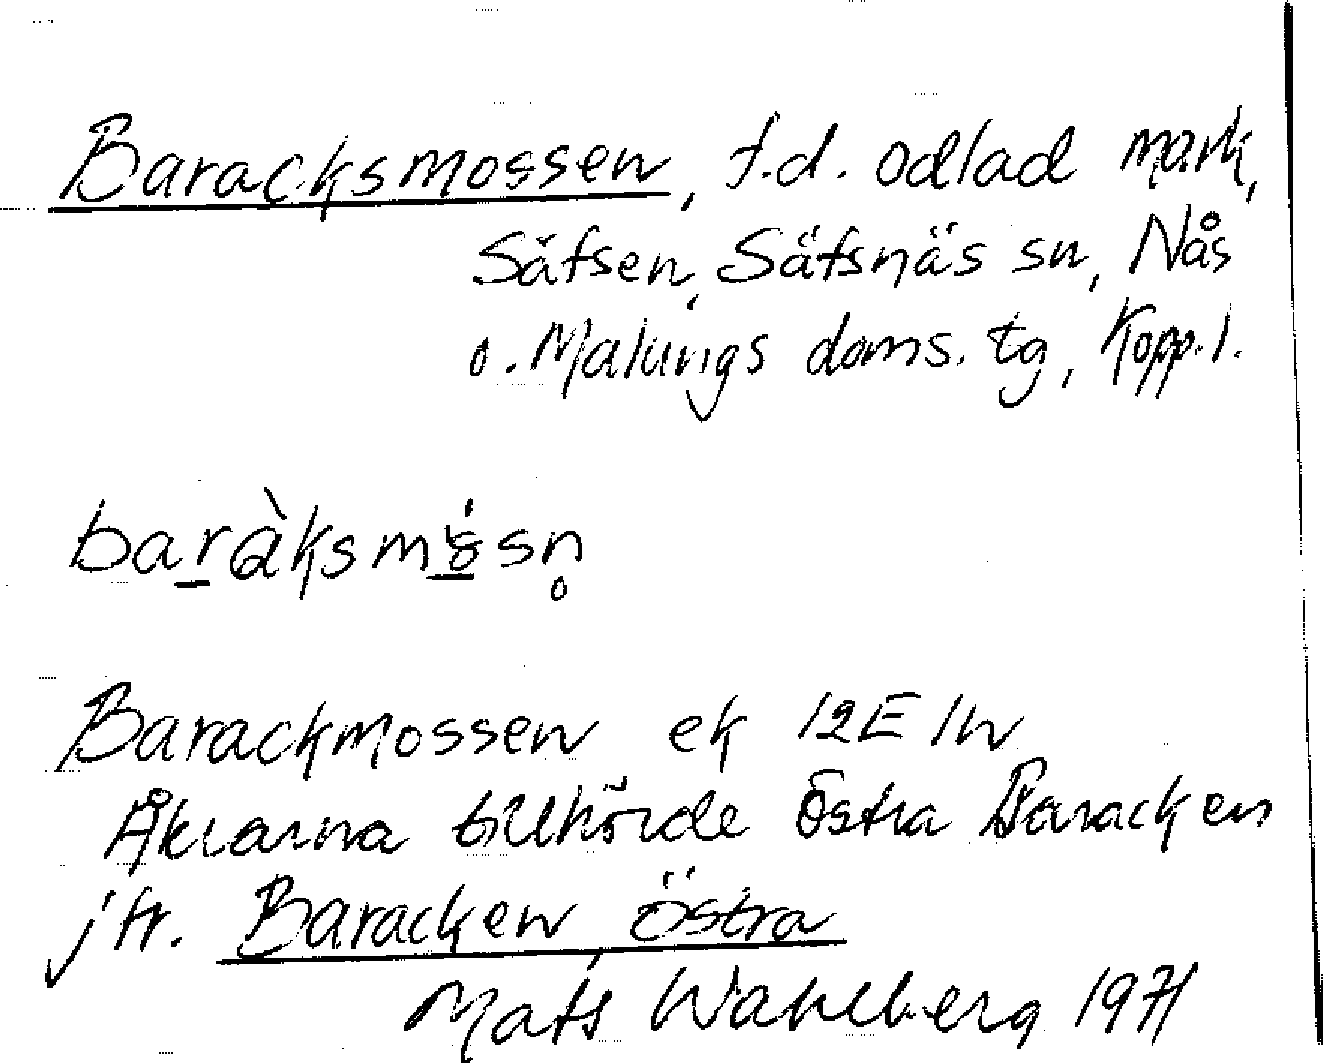 Baracksmossen, f.d. odlad mark,
Säfsen, Säfsnäs sn, Nås
o. Malungs doms. tg, Kopp. l.
baràksmɵ́sn̥
Barackmossen ek 12E 1h
Åkrarna tillhörde Östra Baracken
jfr. Baracken, Östra
Mats Wahlberg 1971